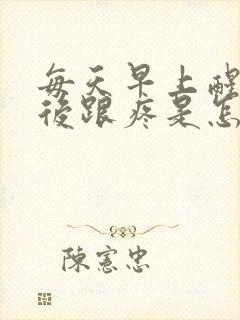 每天早上醒
後跟疼是怎
陳憲忠